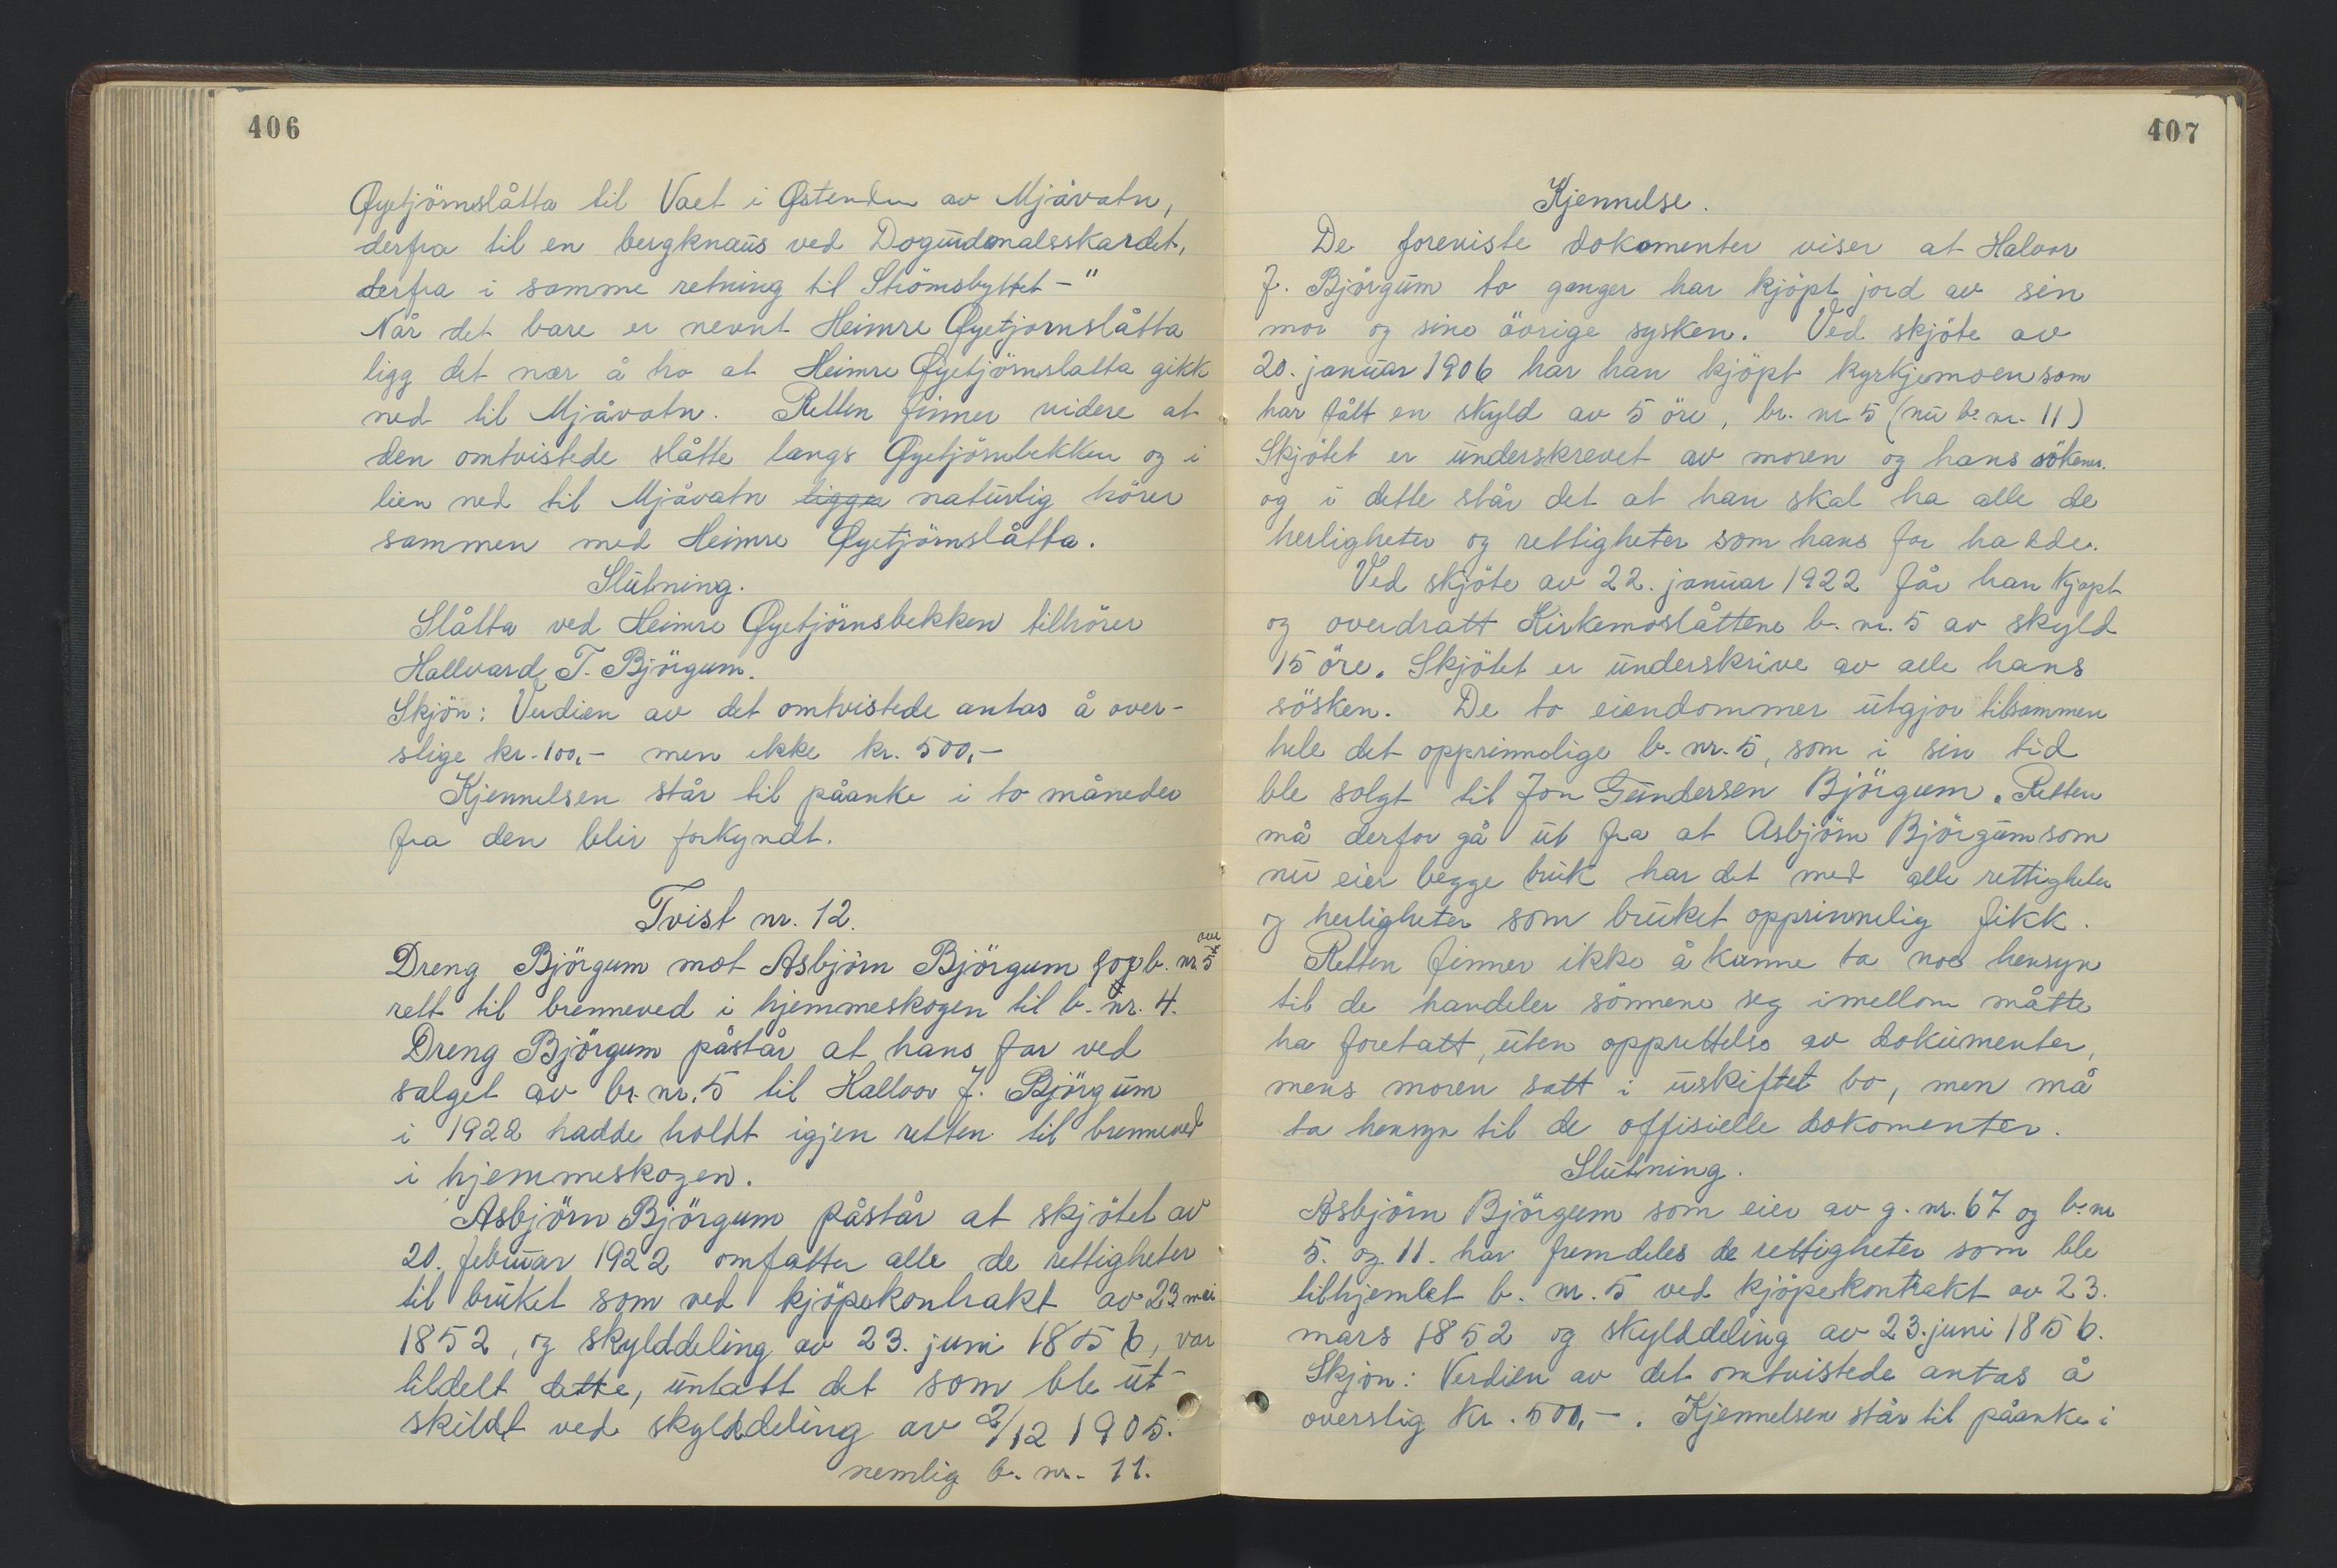 406
Øyetjörnslåtta til Vaet i Østenden av Mjåvatn,
derfra til en bergknaus ved Dogurdmalsskardet,
derfra i samme retning til Strömsbyttet -"
Når det bare er nevnt Heimre Øyetjornslåtta
ligg det nær å tro at Heimre Øyetjörnslatta gikk
ned til Mjåvatn. Retten finner videre at
den omtvistede slåtte langs Øyetjörnbekken og i
lien ned til Mjåvatn ligger naturlig hörer
sammen med Heimre Øyetjörnslåtta.
Slutning.
Slåtta ved Heimre Øyetjörnsbekken tilhörer
Hallvard T. Björgum.
Skjön: Verdien av det omtvistede antas å over-
slige kr. 100,- men ikke kr. 500,-
Kjennelsen står til påanke i to måneder
fra den blir forkyndt.
Tvist nr. 12.
Dreng Björgum mot Asbjörn Björgum b. nr. 5
rett til brenneved i hjemmeskogen til b. nr. 4.
Dreng Björgum påstår at hans far ved
salget av br. nr. 5 til Hallvor J. Björgum
i 1922 hadde holdt igjen retten til brenneved
i hjemmeskogen.
Asbjörn Björgum påstår at skjötet av
20. februar 1922 omfatter alle de rettigheter
til bruket som ved kjöpekontrakt av 23 mai
1852, og skylddeling av 23. juni 1856, var
tildelt dette, untatt det som ble ut-
skildt ved skylddeling av 2/12 1905.
nemlig b. nr. 11.
407
Kjennelse.
De foreviste dokomenter viser at Halvor
J. Björgum to ganger har kjöpt jord av sin
mor og sine övrige sysken. Ved skjöte av
20. januar 1906 har han kjöpt kyrkjemoen som
har fått en skyld av 5 öre, br. nr. 5 (nu b. nr. 11)
Skjötet er underskrevet av moren og hans sökener.
og i dette står det at han skal ha alle de
herligheter og rettigheter som hans far hadde.
Ved skjöte av 22. januar 1922 får han kjøpt
og overdratt Kirkemoslåttene b. nr. 5 av skyld
15 öre. Skjötet er underskrive av alle hans
sösken. De to eiendommer utgjor tilsammen
hele det opprinnelige b. nr. 5, som i sin tid
ble solgt til Jon Gundersen Björgum. Retten
må derfor gå ut fra at Asbjörn Björgum som
nu eier begge bruk har det med alle rettigheter
og herligheter som bruket opprinnelig fikk.
Retten finner ikke å kunne ta noe hensyn
til de handeler sönnene seg imellom måtte
ha foretatt, uten opprettelse av dokumenter,
mens moren satt i uskiftet bo, men må
ta hensyn til de offisielle dokomenter.
Slutning.
Asbjörn Björgum som eier av g. nr. 67 og b. nr
5. og 11. har fremdeles de rettigheter som ble
tilhjemlet b. nr. 5 ved kjöpekontrakt av 23.
mars 1852 og skylddeling av 23. juni 1856.
Skjön: Verdien av det omtvistede antas å
overslig kr. 500,-. Kjennelsen står til påanke i